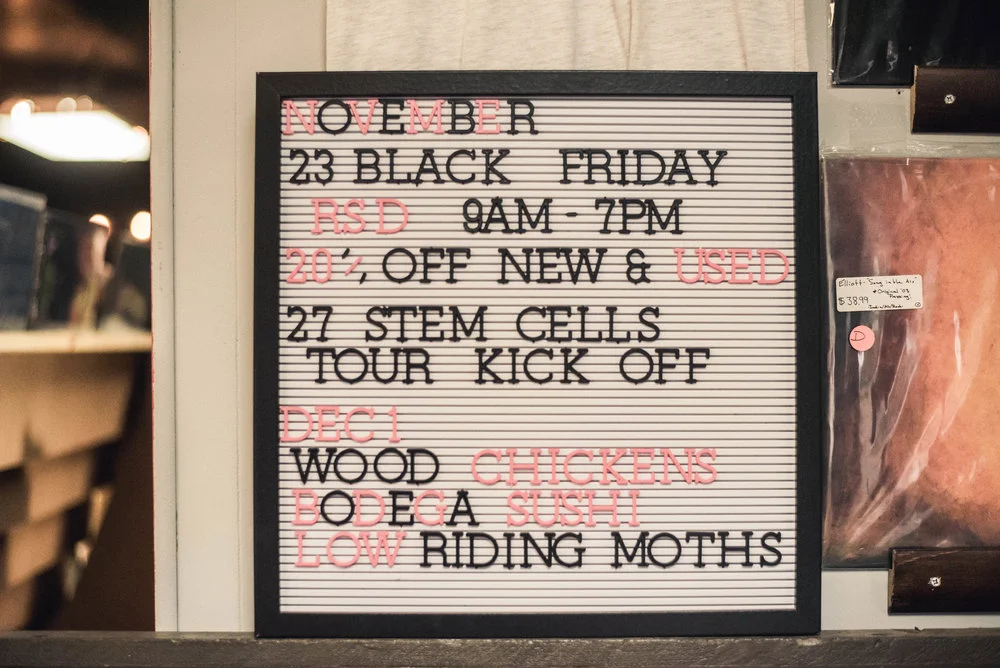 NOVEMBER
23 BLACK FRIDAY
RSD 9AM - 7PM
20% OFF NEW & USED
27 STEM CELLS
TOUR KICK OFF
DEC 1
WOOD CHICKENS
BODEGA SUSHI
LOW RIDING MOTHS
Elliott "Song in the Air"
$38.99
D